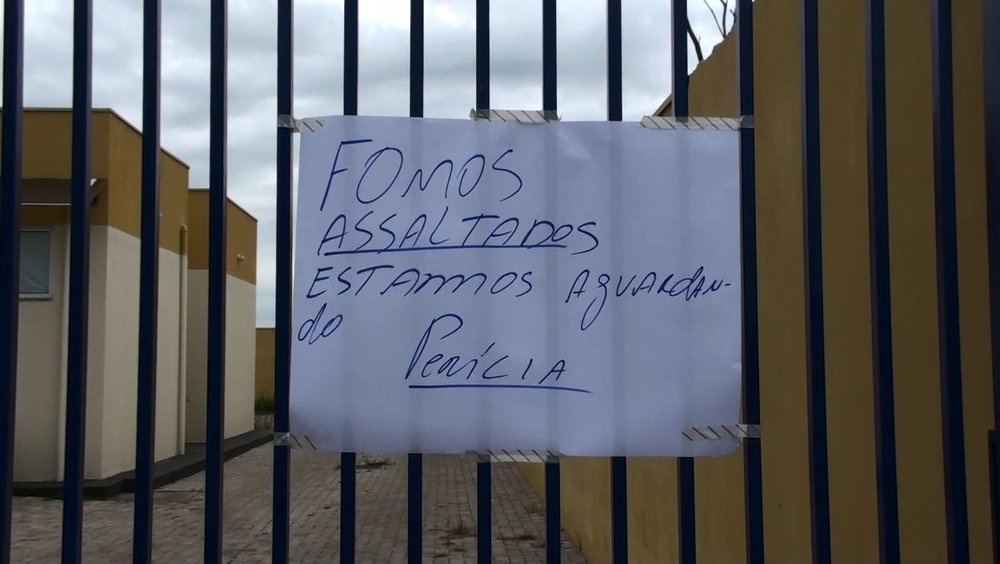 FOMOS
ASSALTADOS
ESTAMOS AGUARDAN-
do
PERÍCIA